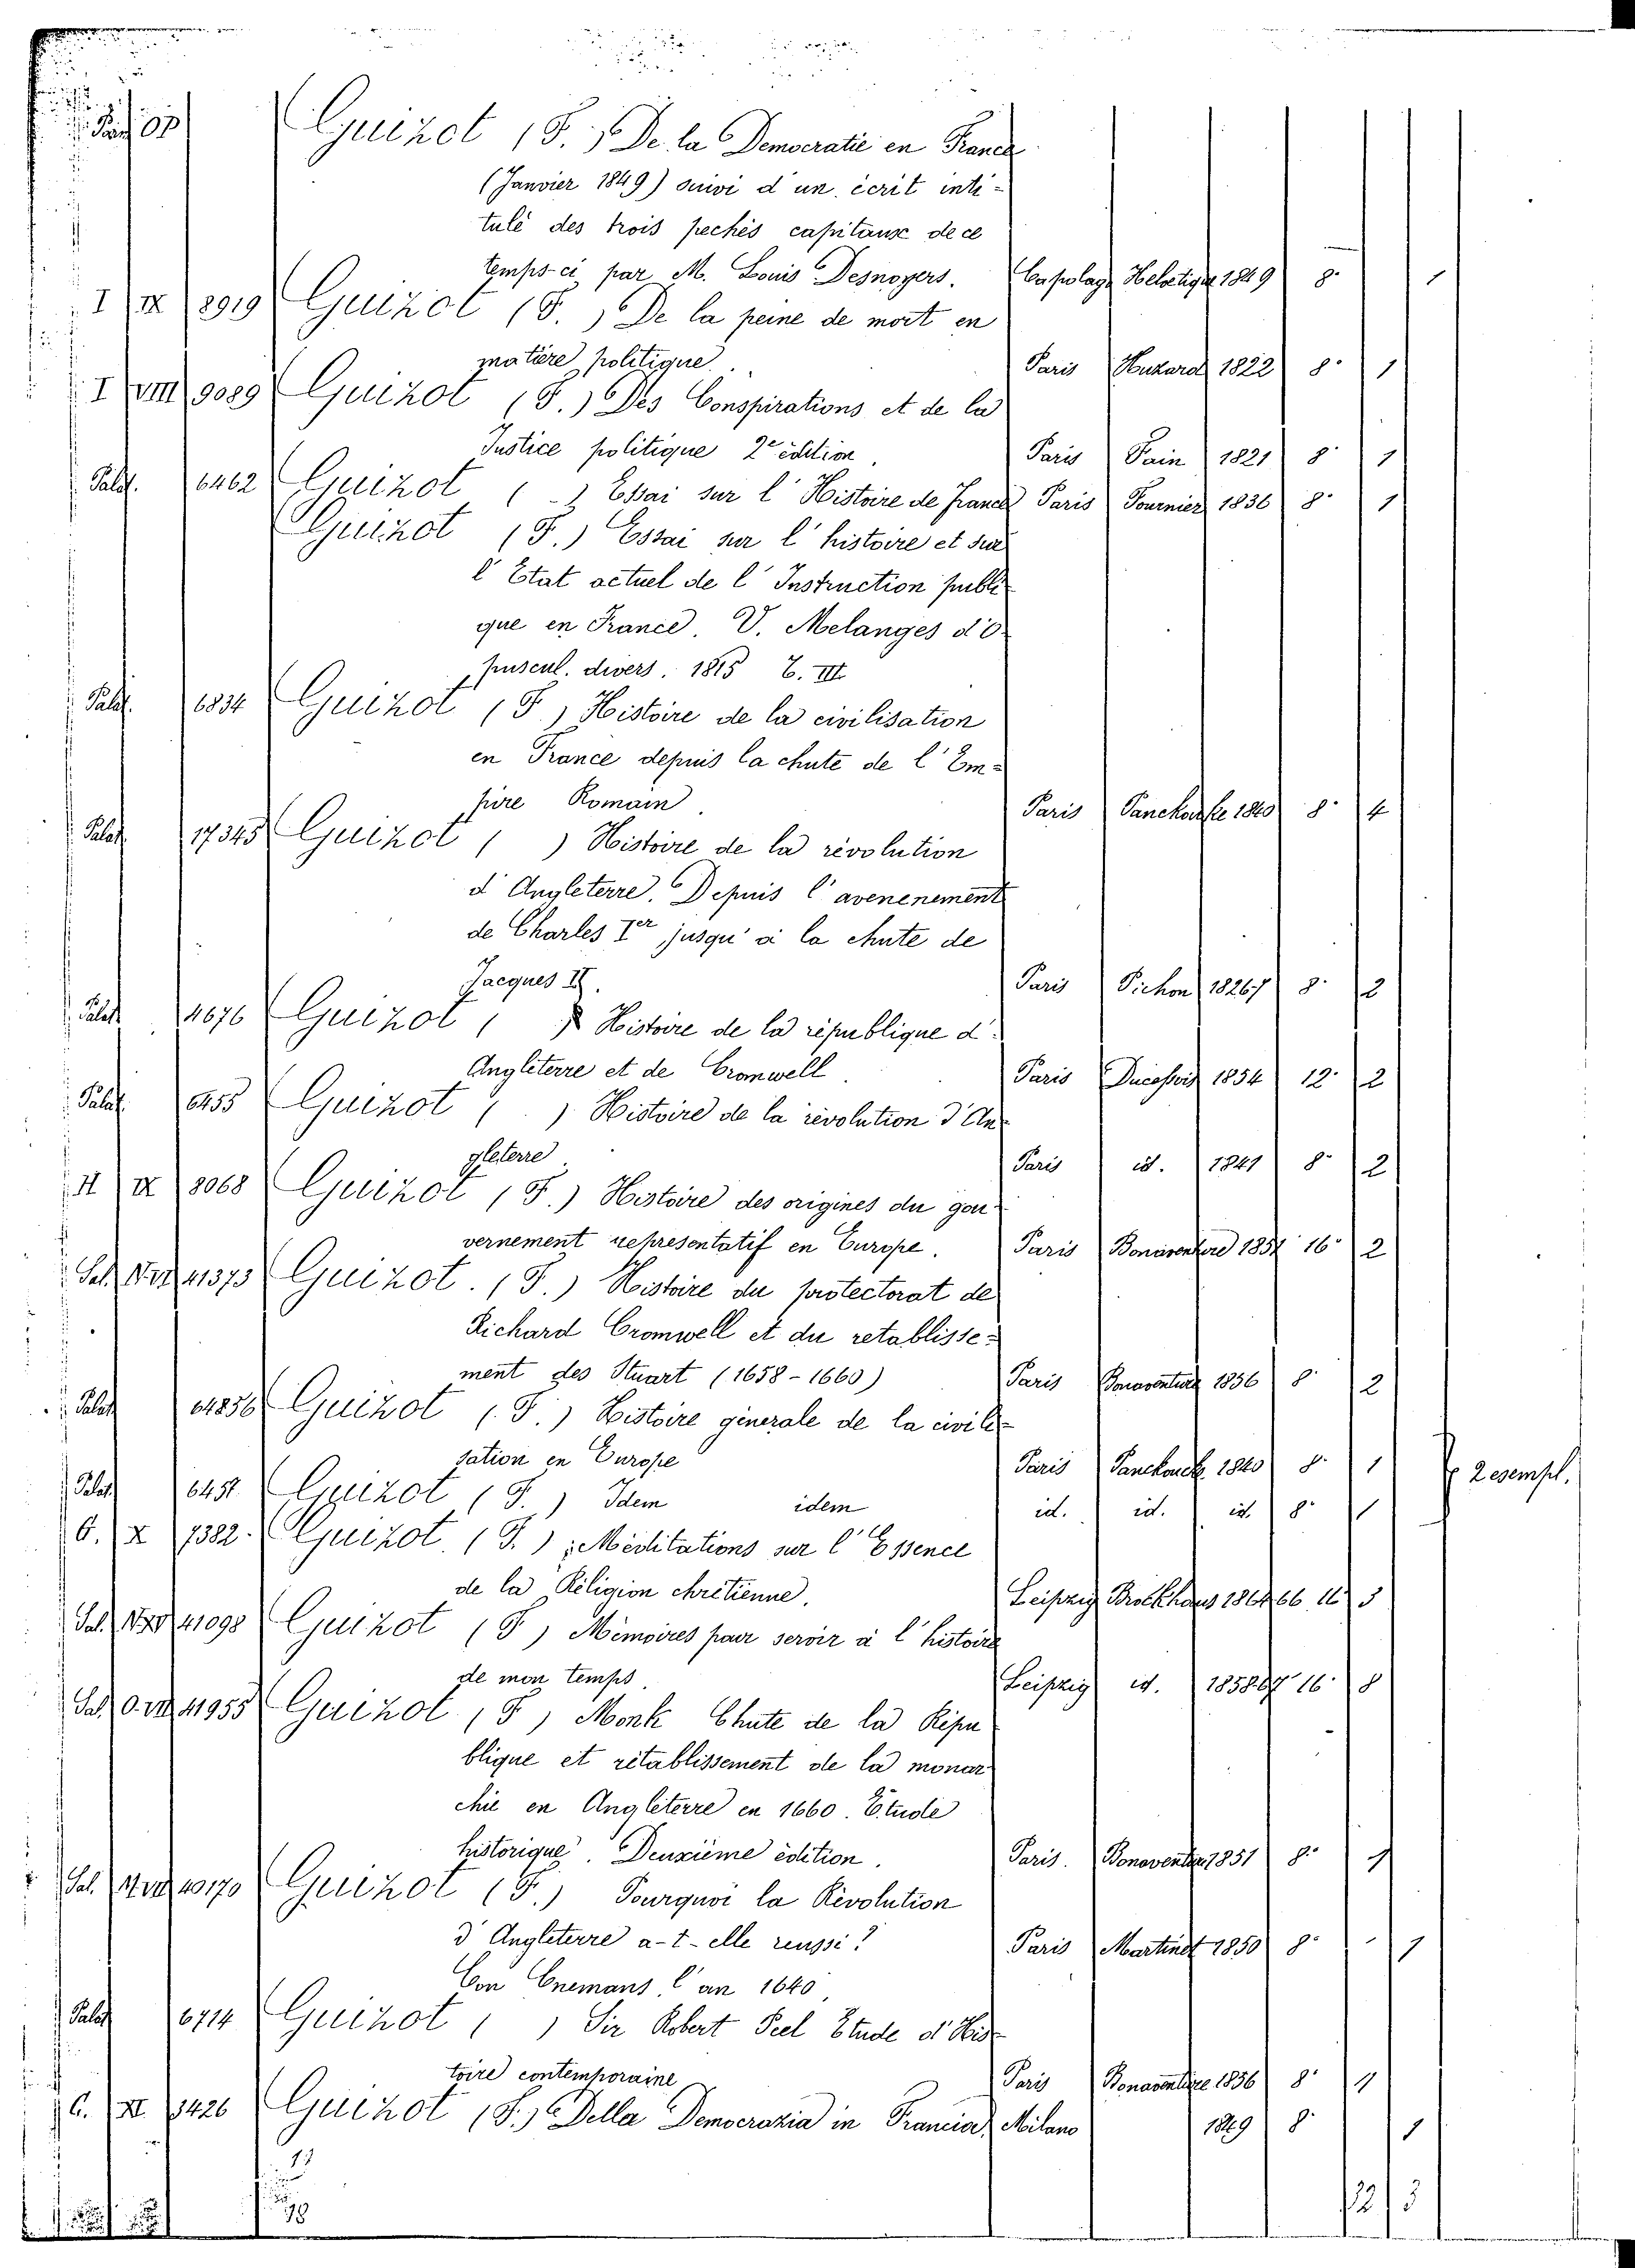 Guizot (F.) De la Democratie en France
(Janvier 1849) suivi d'un écrit inti-
tulé des trois pechés capitaux de ce
temps-ci par M. Louis Desnoyers. Capolago Helvetique 1849 8° 1
I IX 8919 Guizot (F.) De la peine de mort en
matière politique. Paris Huzard 1822 8° 1
I VIII 9089 Guizot (F.) Des Conspirations et de la
Justice politique 2e édition. Paris Pain 1821 8° 1
Palat. 6462 Guizot ( ) Essai sur l'Histoire de France Paris Fournier 1836 8° 1
Guizot (F.) Essai sur l'histoire et sur
l'Etat actuel de l'Instruction publi
que en France. V. Melanges d'O
puscul. divers. 1815 T. III
Palat. 6834 Guizot (F.) Histoire de la civilisation
en France depuis la chute de l'Em-
pire Romain. Paris Panckoucke 1840 8° 4
Palat. 17345 Guizot ( ) Histoire de la révolution
d'Angleterre. Depuis l'avenenement
de Charles Ier jusqu'à la chute de
Jacques II. Paris Pichon 1826-7 8° 2
Palat. 4676 Guizot ( ) Histoire de la république d'
Angleterre et de Cromwell. Paris 1854 12° 2
Palat. 6455 Guizot ( ) Histoire de la révolution d'An
gleterre. Paris id. 1841 8° 2
II IX 8068 Guizot (F.) Histoire des origines du gou
vernement representatif en Europe. Paris Bonaventure 1857 16° 2
Sal. 41373 Guizot. (F.) Histoire du protectorat de
Richard Cromwell et du retablisse-
ment des Stuart (1658-1660) Paris Bonaventure 1856 8° 2
Palat. 64856 Guizot (F.) Histoire générale de la civili-
sation en Europe Paris Panckoucke 1840 8° 1
2 esempl.
Palat. 6451 Guizot (F.) Idem idem id. id. id. 8° 1
6. X 7382. Guizot (F.) Méditations sur l'Essence
de la Réligion chrétienne. Leipzig Brockhaus 1864-66 16° 3
Sal. 41098 Guizot (F.) Mémoires pour servir à l'histoire
de mon temps. Leipzig id. 1858-67 16° 8
Sal. 41955 Guizot (F.) Monk Chute de la Répu
blique et rétablissement de la monar
chie en Angleterre en 1660. Etude
historique. Deuxième édition. Paris. Bonaventure 1851 8° 1
Sal. 40170 Guizot (F.) Pourquoi la Révolution
d'Angleterre a-t-elle reussi? Paris Martinet 1850 8° 1
l'an 1640
Palat. 6714 Guizot ( ) Sir Robert Peel Etude d'His-
toire contemporaine Paris Bonaventure 1856 8° 1
6. XI 3426 Guizot (F.) Della Democrazia in Francia. Milano 1849 8° 1